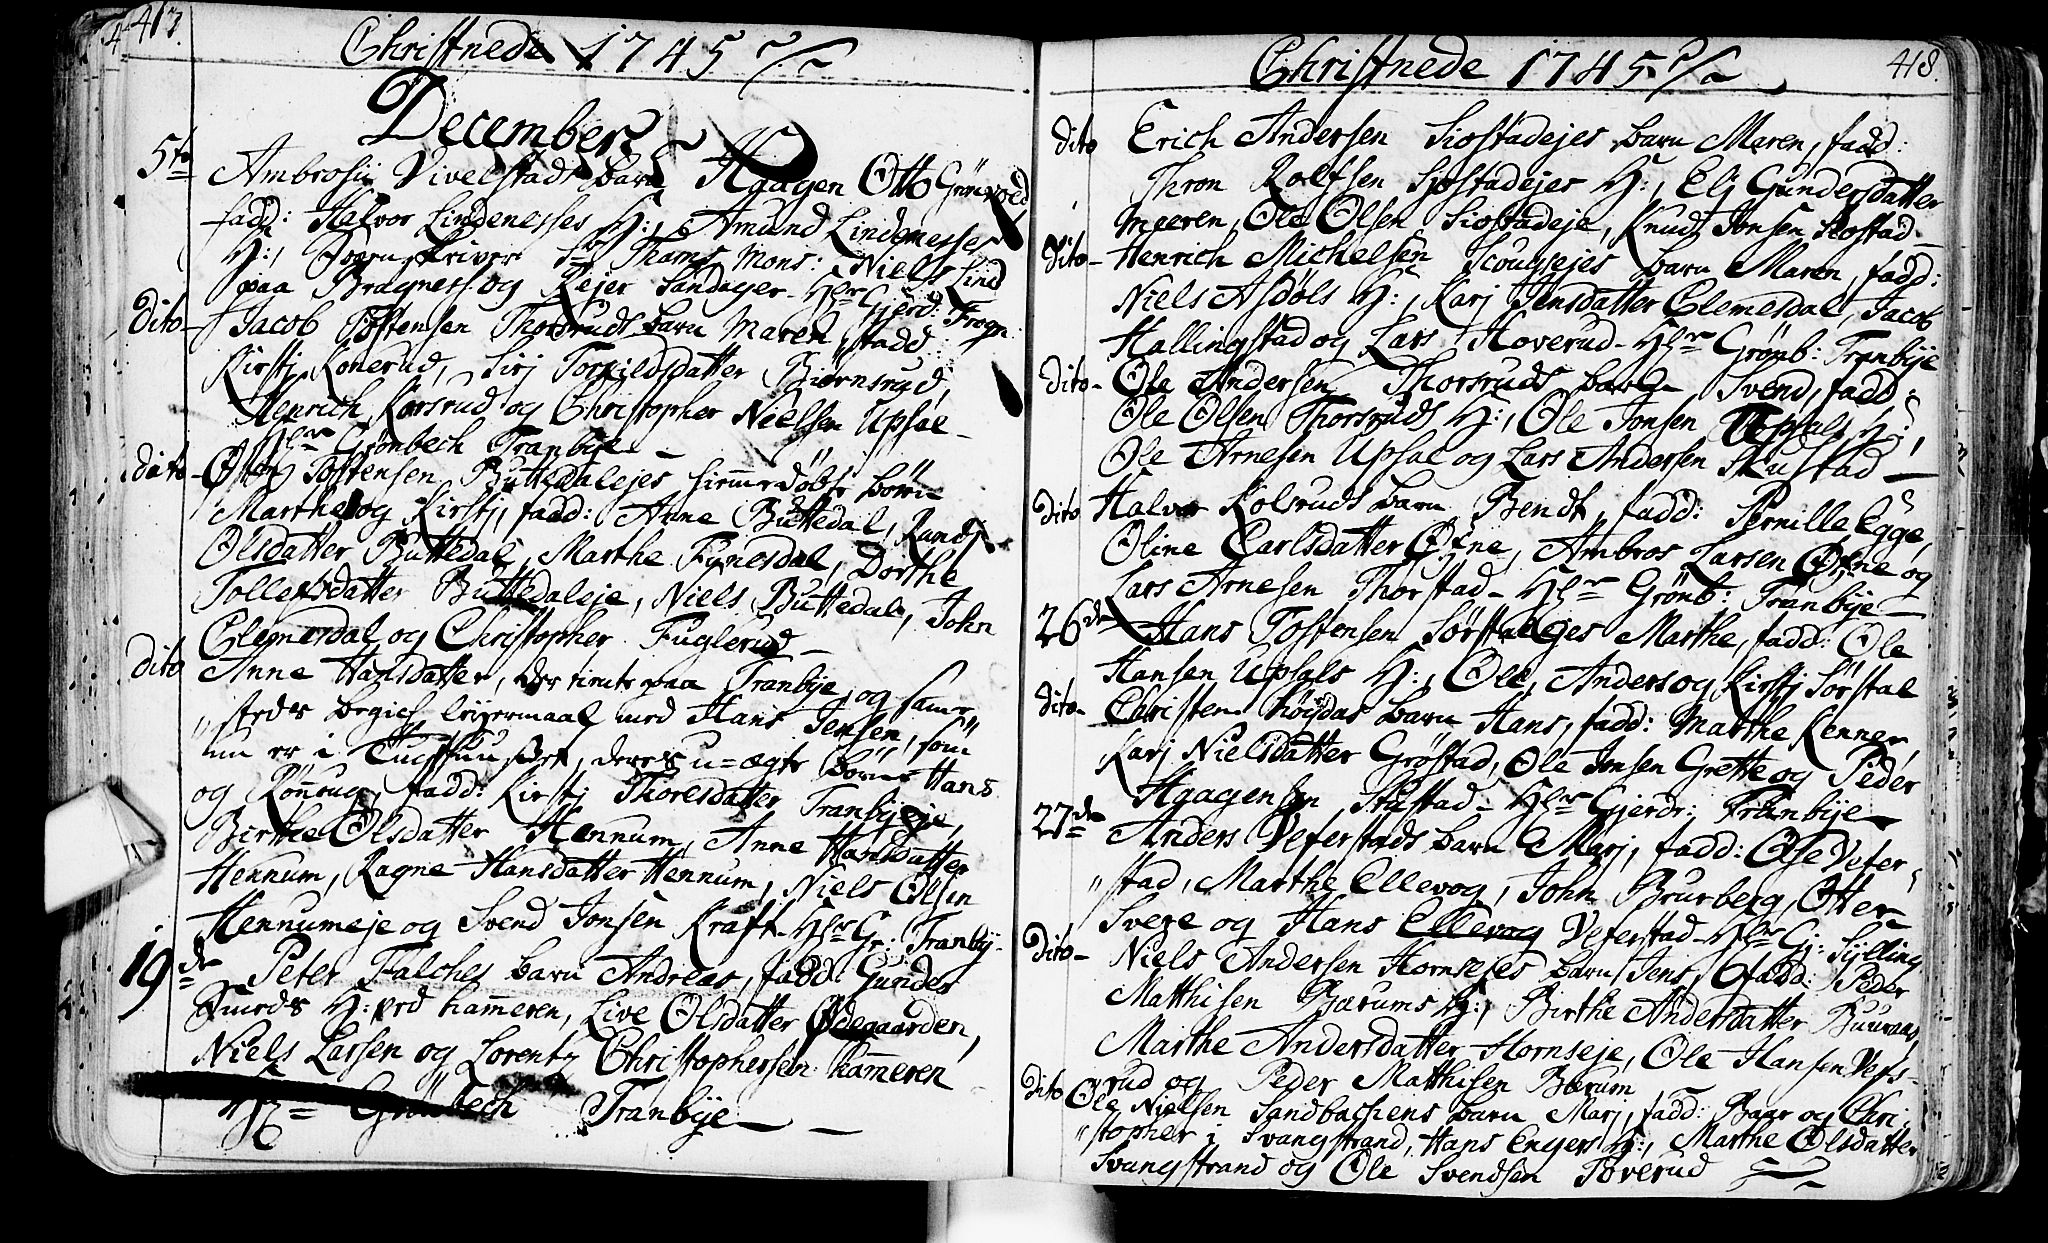 417.
Christnede 1745
December
5te Ambrosii Vivelstads barn Haagen Otto Grönvold
fadd: Halvor Lindenesses H:, Amund Lindenesses
H:, Sogenskriver Sr Thams, Mons: Niels Lind
paa Bragnes og Rejer Sandager - Hlr Gjerd: Frogn:
Dito - Jacob Tostensen Thorsruds barn Maren, fadd:
Kirstj Konerud, Sirj Torkildsdatter Biørnsrud,
Henrich Korsrud og Christopher Nielsen Upsal -
Hlr Grönbech Tranbije -
dito - Østen Tostensen Buttedalejes hiemedøbte børn
Marthe og Kirstj, fadd: Anne Buttedal, Randj
Olsdatter Buttedal, Marthe Fynesdal, Dorthe
Tollefsdatter Buttedaleje, Niels Buttedal, John
Clemesdal og Christopher Fuglerud -
dito Anne Hansdatter, der tiente paa Tranbije, og samme
steds begich leiermaal med Hans Jensen, som
nu er i Tugthuuset, deres u-ægte børn Hans
og Rönnug, fadd: Kirstj Thoresdatter Tranbijeje,
Birthe Olsdatter Hennum, Anne Hansdatter
Hennum, Ragne Hansdatter Hennum, Niels Olsen
Hennumeje og Svend Jonsen Kraft - Hlr Gr: Tranbij -
19de Peter Falches barn Andreas, fadd: Gunder
Smeds H: ved Kammeren, Live Olsdatter Ødegaarden,
Niels Larsen og Lorentz Christophersen Kammeren
Grönbech Tranbije -
418.
Christnede 1745
dito Erich Andersen Siostadejes barn Maren, fadd:
Thron Rolfsen Siostadejes H:, Elj Gundersdatter
Meeren, Ole Olsen Siostadeje, Knud Jonsen Siostad -
dito - Henrich Michelsen Scougsejes barn Maren, fadd:
Niels Asdøls H:, Karj Jensdatter Clemesdal, Jacob
Hallingstad og Lars Hoverud - Hlr Grönb: Tranbije
dito - Ole Andersen Thorsruds barn Svend, fadd:
Ole Olsen Thorsruds H:, Ole Jonsen Upsals H:,
Ole Arnesen Upsal og Lars Andersen Skustad -
dito Halvor Kolsruds barn Bendt, fadd: Pernille Egge,
Oline Carlsdatter Øfne, Ambros Larsen Øfne og
Lars Arnesen Thorstad - Hlr Grönb: Tranbije -
26de Hans Tostensen Sørstalejes Marthe, fadd: Ole
Hansen Upsals H:, Ole, Anders og Kirstj Sørstal
dito - Christen Høijdas barn Hans, fadd: Marthe Kenner,
Karj Nielsdatter Grøstad, Ole Jonsen Grette og Peder
Haagensen Skustad - Hlr Gjerdr: Tranbije -
27de Anders Veferstads barn Marj, fadd: Ose Vefer-
stad, Marthe Ellevog, John Brurberg, Otter
Svere og Hans Ellevog Veferstad - Hlr Gj: Sylling
dito - Niels Andersen Hornsejes barn Jens, fadd: Peder
Matthisen Bærums H:, Birthe Andersdatter Buuraas,
Marthe Andersdatter Hornseje, Ole Hansen Vefs-
rud og Peder Matthisen Bærum
dito Ole Nielsen Sandbachens barn Marj, fadd: Baar og Chri-
stopher i Svangstrand, Hans Engers H:, Marthe Olsdatter
Svangstrand og Ole Svendsen Toverud